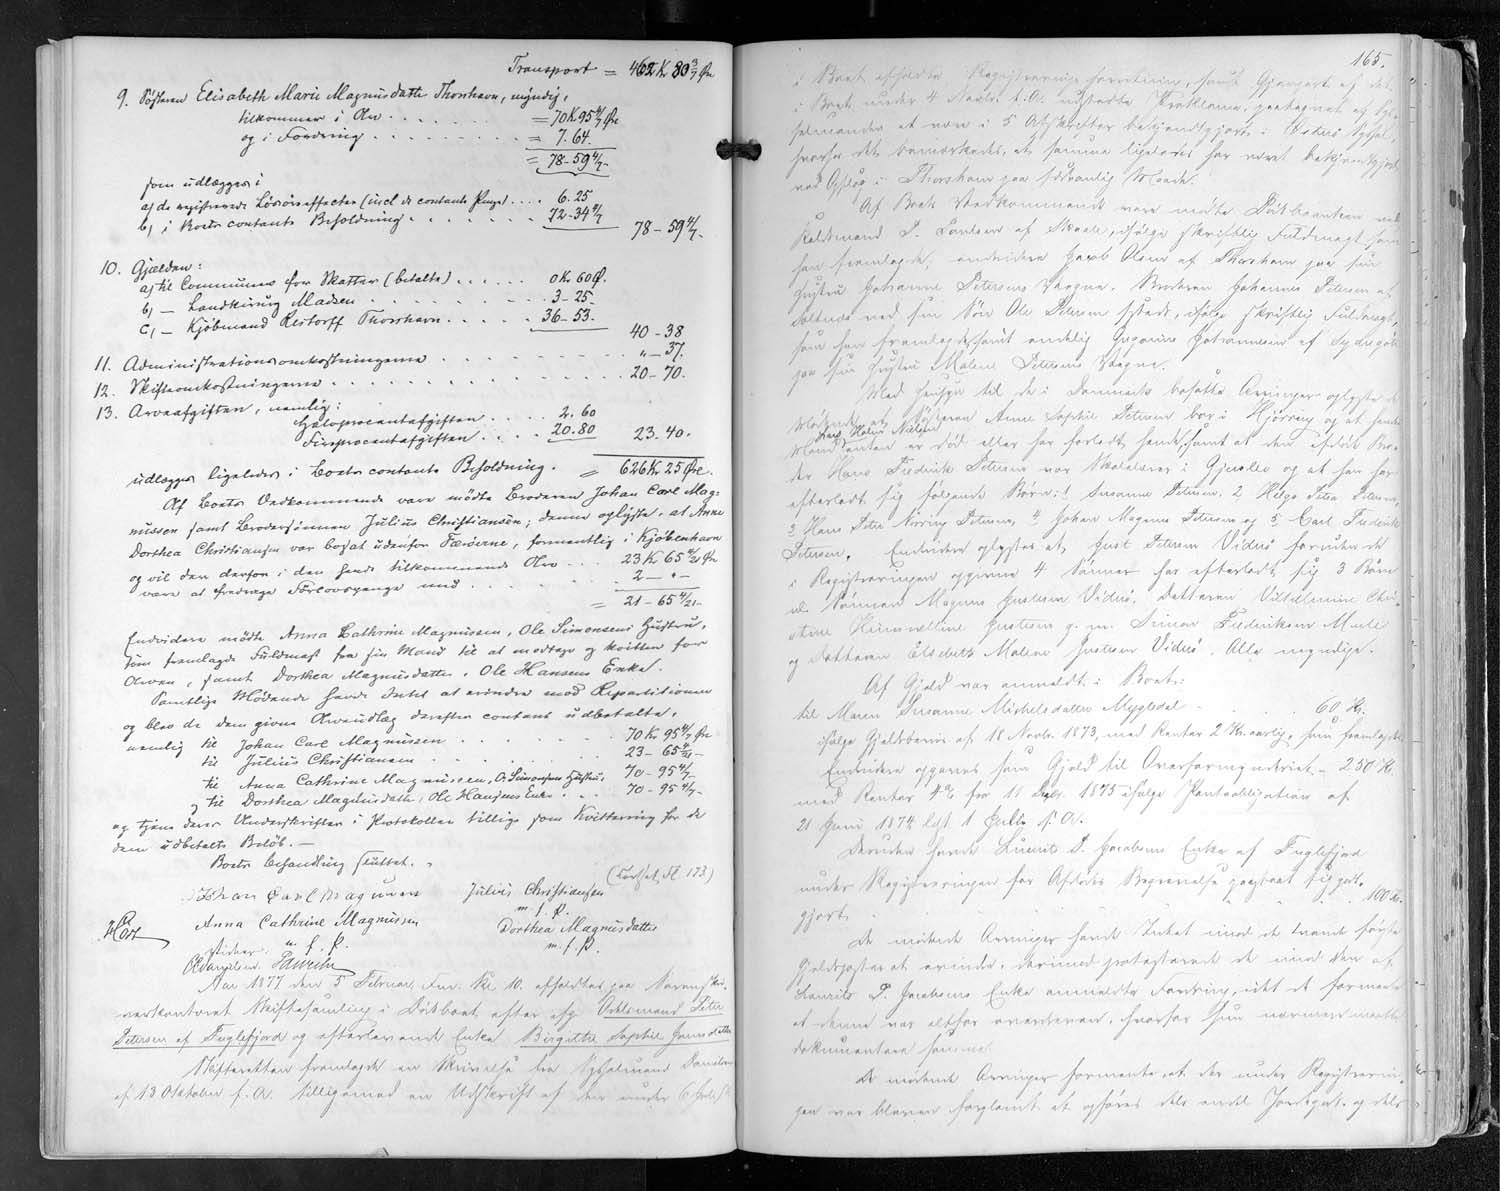 Transport = 462 Kr 80 3/7 Øre
9. Søsteren Elisabeth Marie Magnusdatter Thorshavn, myndig,
tilkommer i Arv . . . . = 70 Kr 95 4/7 Øre
og i Fordring . . . . = 7. 64.
= 78 - 59 4/7 -
som udlægges i
a, de registrerede Løsøreeffecter (incl. de contante Penge) . . . . 6. 25
b, i Boets contante Beholdning . . . . 72 - 34 4/7
78 - 59 4/7 -
10. Gjælden:
a, til Communen for Skatter (betalte) . . . . 0 Kr. 60 Ø.
b, — Landkirurg Madsen . . . . 3 - 25.
c, — Kjøbmand Restorff Thorshavn . . . . 36 - 53.
40 - 38
11. Administrationsomkostningerne . . . . " - 37.
12. Skifteomkostningerne . . . . 20 - 70.
13. Arveafgiften, nemlig:
Halvprocentafgiften . . . . 2. 60
Fireprocentafgiften . . . . 20. 80
23. 40.
udlægges ligeledes i Boets contante Beholdning. = 626 Kr 25 Øre.
Af Boets Vedkommende vare mødte Broderen Johan Carl Mag-
nussen samt Brodersønnen Julius Christiansen; denne oplyste, at Anne
Dorthea Christiansen var bosat udenfor Færøerne, formentlig i Kjøbenhavn
og vil den derfor i den hende tilkommende Arv . . . 23 Kr 65 4/21 Øre
være at fradrage Førlovspenge med . . . . 2 - " -
= 21 - 65 4/21 -
Endvidere mødte Anna Cathrine Magnussen, Ole Simonsens Hustru,
som fremlagde Fuldmagt fra sin Mand til at modtage og kvittere for
Arven, samt Dorthea Magnusdatter, Ole Hansens Enke.
Samtlige Mødende havde Intet at erindre mod Repartitionen
og blev de dem givne Arveudlæg derefter contant udbetalte,
nemlig til Johan Carl Magnussen . . . . 70 Kr. 95 4/7 Øre
til Julius Christiansen . . . . 23 - 65 4/21 -
til Anna Cathrine Magnussen, O. Simonsens Hustru, 70 - 95 4/7 -
og til Dorthea Magnusdatter, Ole Hansens Enke . . . 70 - 95 4/7 -
og tjene deres Underskrifter i Protokollen tillige som Kvittering for de
dem udbetalte Beløb. —
Boets Behandling sluttet.
(Forts. Fl. 173)
Johan Carl Magnussen Julius Christiansen
m. f. P.
Anna Cathrine Magnussen Dorthea Magnusdatter
m. f. P. m. f. P.
Vidner:
Aar 1877 den 5 Februar, Fm. Kl. 10. afholdtes paa Sorenskri-
verkontoret Skiftesamling i Dødboet efter afg. Odelsmand Peter
Petersen af Fuglefjord og efterlevende Enke Birgitthe Sophie Joensdatter
Skifteretten fremlagde en Skrivelse fra Sysselmand Danielsen
af 13 Oktober f. A. tilligemed en Udskrift af den under 6
165.
i Boet afholdte Registreringsforretning, samt Gjenpart af det
i Boet under 4 Novbr. f. A. udstedte Proklama, paategnet af Sys-
selmanden at være i 5 Afskrifter bekjendtgjort i Østerø Syssel,
hvorhos det bemærkedes, at samme ligeledes har været bekjendtgjort
ved Opslag i Thorshavn paa sædvanlig Maade.
Af Boets Vedkommende vare mødte Dødboenken ved
Kaldsmand P. Poulsen af Skaale, ifølge skriftlig Fuldmagt som
han fremlagde, endvidere Jacob Olsen af Thorshavn paa sin
Hustru Johanne Petersens Vegne. Broderen Johannes Petersen af
ved sin Søn Ole Petersen systeds, ifølge skriftlig Fuldmagt,
som han fremlagde, samt endelig Johannesen af Sydregøte
paa sin Hustru Malene Petersens Vegne.
Med Hensyn til de i Danmark bosatte Arvinger oplyste de
Mødende, at Søsteren Anne Sophie Petersen bor i Hjørring og at hendes
Mand Lars Holm Nielsen enten er død eller har forladt hende, samt at den afdøde Bro-
der Hans Fredrik Petersen var Skolelærer i og at han har
efterladt sig følgende Børn: 1 Susanne Petersen, 2 Helga Petra Petersen,
3 Hans Peter Petersen, 4 Johan Magnus Petersen og 5 Carl Fredrik
Petersen. Endvidere oplystes at Petersen Viderø foruden de
i Registreringen opgivne 4 Sønner har efterladt sig 3 Børn
nl. Sønnen Magnus Justesen Viderø, Datteren Vilhelmine Chri-
stine Justesen g. m. Simon Frederiksen Mule
og Datteren Elsebeth Malene Justesen Viderø. Alle myndige.
Af Gjæld var anmeldt i Boet:
til Maren Susanne Michelsdatter Mygledal . . . . 60 Kr.
ifølge Gjældsbevis af 18 Novbr. 1873, med Renter 2 Kr. aarlig, som fremlagdes
Endvidere opgaves som Gjæld til Overformynderiet — 250 Kr.
med Renter 4% fra 11 Decbr. 1875 ifølge Pantobligation af
21 Juni 1874 lgt. 1 Juli s. A.
Desuden havde D. Jacobsens Enke af Fuglefjord
under Registreringen for Afdødes Begravelse paastaaet sig godt-
gjort . . . . 100 Kr.
De mødende Arvinger havde Intet imod de tvende første
Gjældsposter at erindre, derimod protesterede de imod den af
D. Jacobsens Enke anmeldte Fordring, idet de formente
at denne var altfor overdreven, hvorfor hun nærmere maatte
dokumentere samme.
De mødende Arvinger formente, at der under Registrerin-
gen var bleven forglemt at opføres dels endel Jordegods og dels